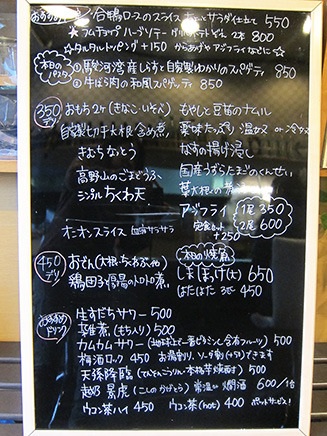 おすすめメニュー 合鴨ロースのスライス サラダ仕立て 550
★ラムチョップ ハーブソテー グリルポテトどーん 2本 800
☆タルタルトッピング +150 からあげや アジフライなどに☆
本日のパスタ
① 駿河湾産しらすと自家製わかりのスパゲティ 850
② 牛ばら肉の和風スパゲティ 850
350デリ
おもち2ヶ(きなこ・いそべ)
自家製切干大根含め煮
きむちなっとう
高野山のごまどうふ
ジャンボちくわ天
オニオンスライス 血液サラサラ
もやしと豆苗のナムル
薬味たっぷり 温奴 or 冷奴
なすの揚げ浸し
国産うずらたまごのくんせい
葉大根の
アジフライ 1尾350 2尾600
定食セット +250
450デリ
おでん(大根、ちくわぶ、他)
鶏団子と白湯のトロトロ煮
本日の焼魚
しまほっけ(大) 650
はたはた 3匹 450
おすすめドリンク
生すだちサワー 500
雑煮(もち入り) 500
カムカムサワー(地球上で一番ビタミンC含有フルーツ) 500
梅酒ロック 450 お湯割り、ソーダ割(+50)できます
天孫降臨(てんそんこうりん・本格芋焼酎) 500
越乃景虎(こしのかげとら) 常温 燗酒 600/1合
ウコン茶ハイ 450 ウコン茶(hot) 400 ポットサービス!